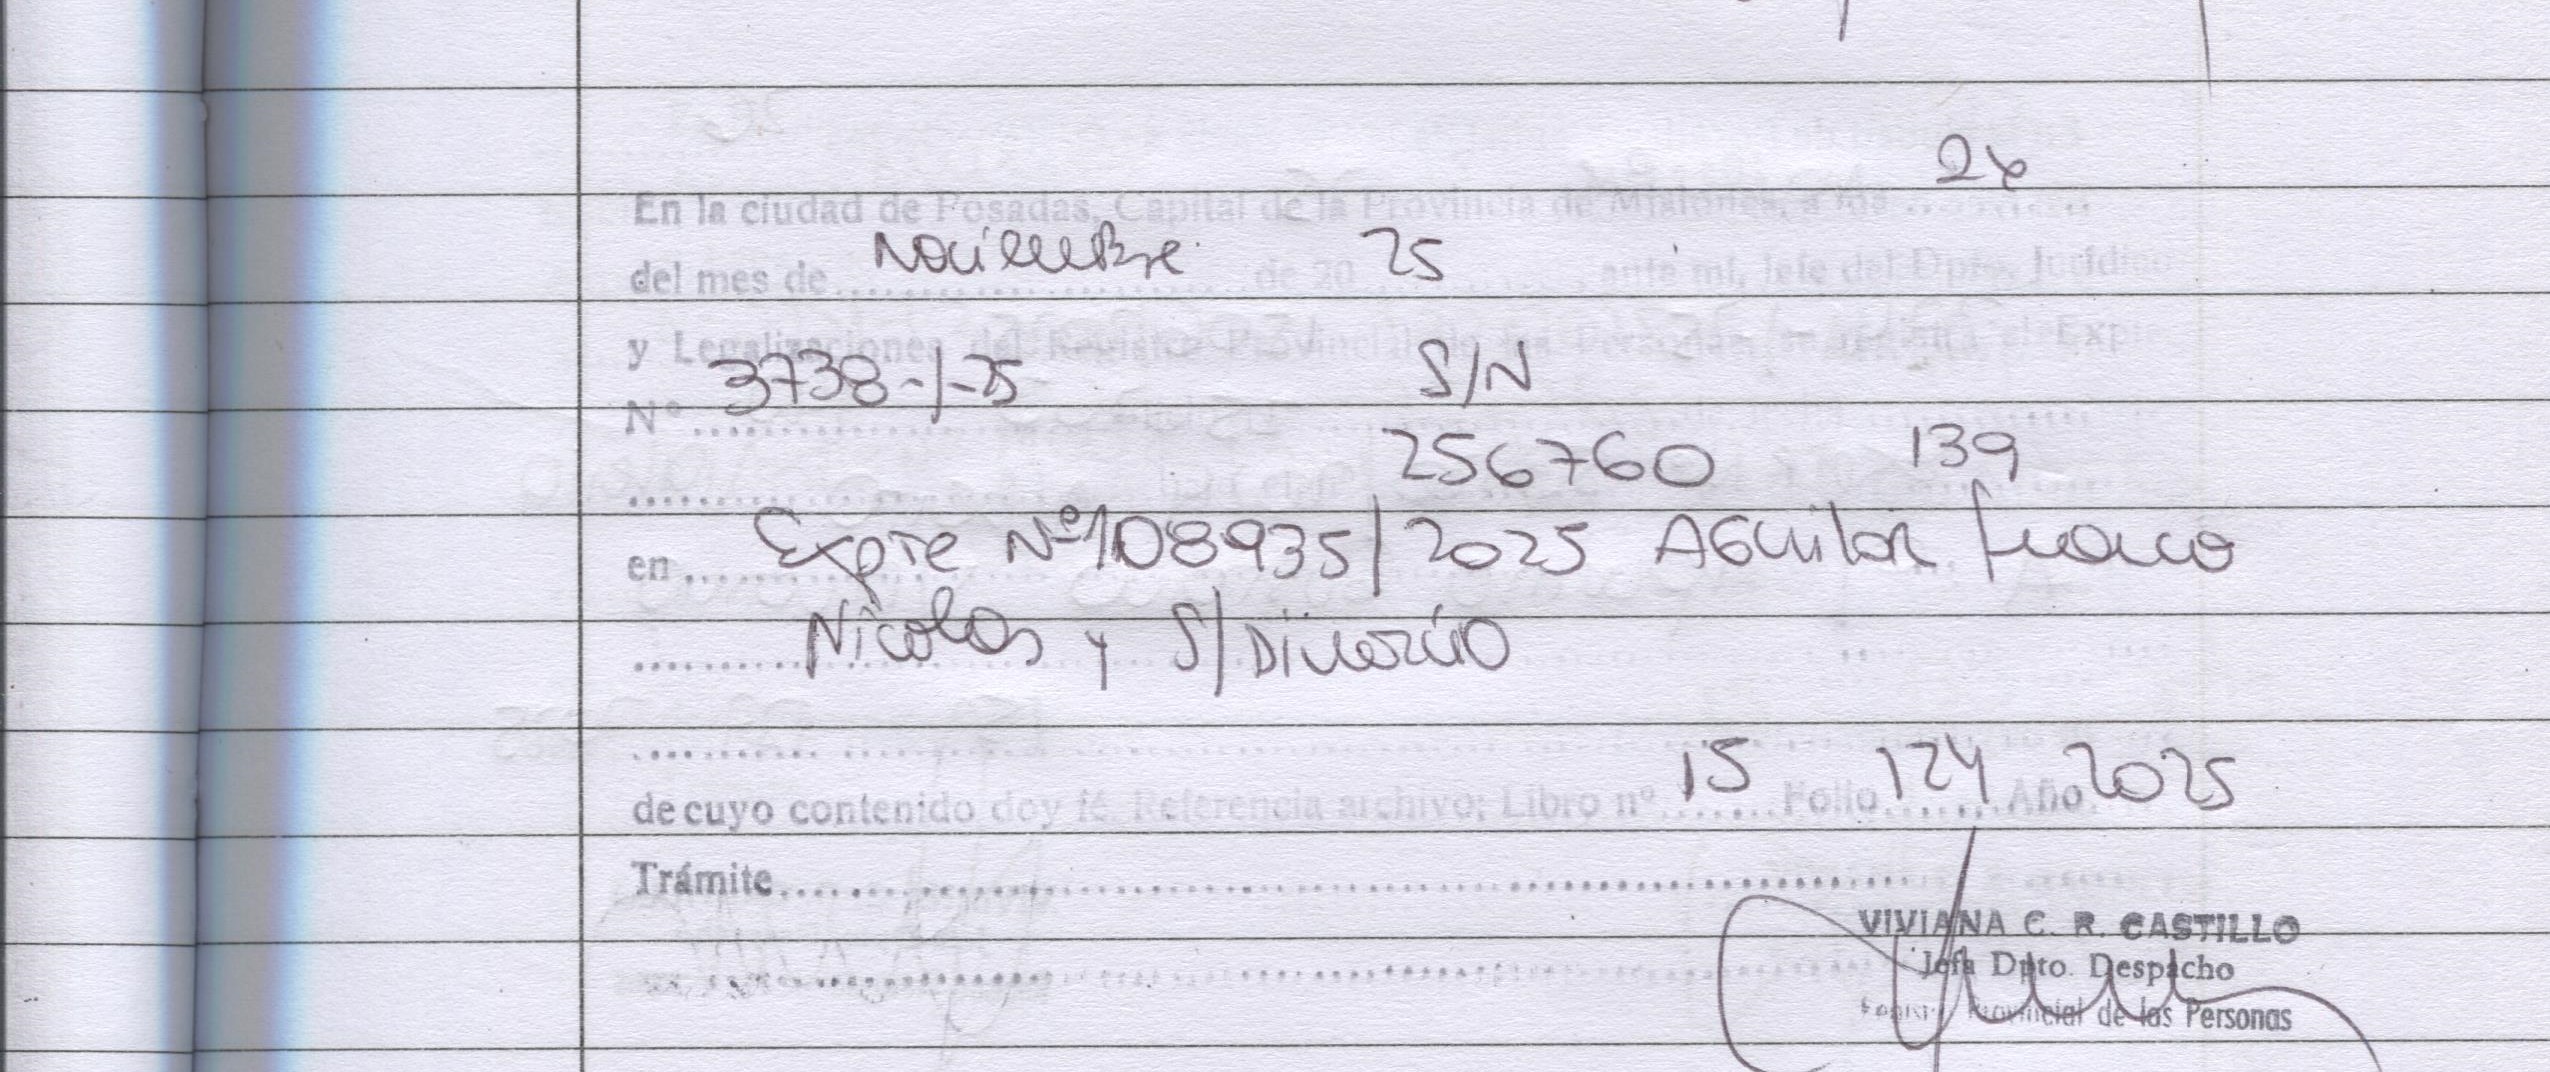 26
En la ciudad de Posadas, Capital de la Provincia de Misiones, a los ............
Noviembre 25
del mes de ........................ de 20 ............, ante mí, Jefe del Dpto. Jurídico
y Legalizaciones del Registro Provincial de las Personas, se registra el Expte
3738-/-25 S/N
Nº ............
256760 139
en ...... Expte Nº 108935/2025 Aguilar Franco
Nicolas y S/Divorcio
15 124 2025
de cuyo contenido doy fé Referencia archivo: Libro nº ....... Folio ....... Año.
Trámite............
VIVIANA C. R. CASTILLO
Jefa Dpto. Despacho
Registro Provincial de las Personas